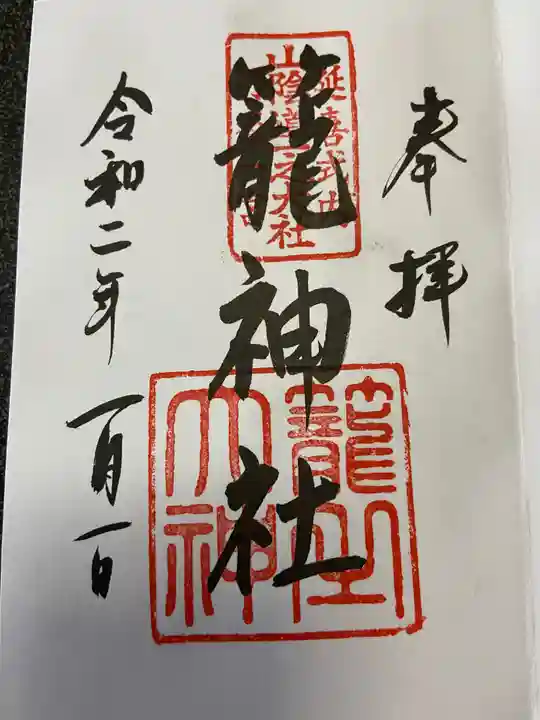 奉拝
籠神社
延喜式内
山陰道一之大社
籠之大神
令和二年一月一日